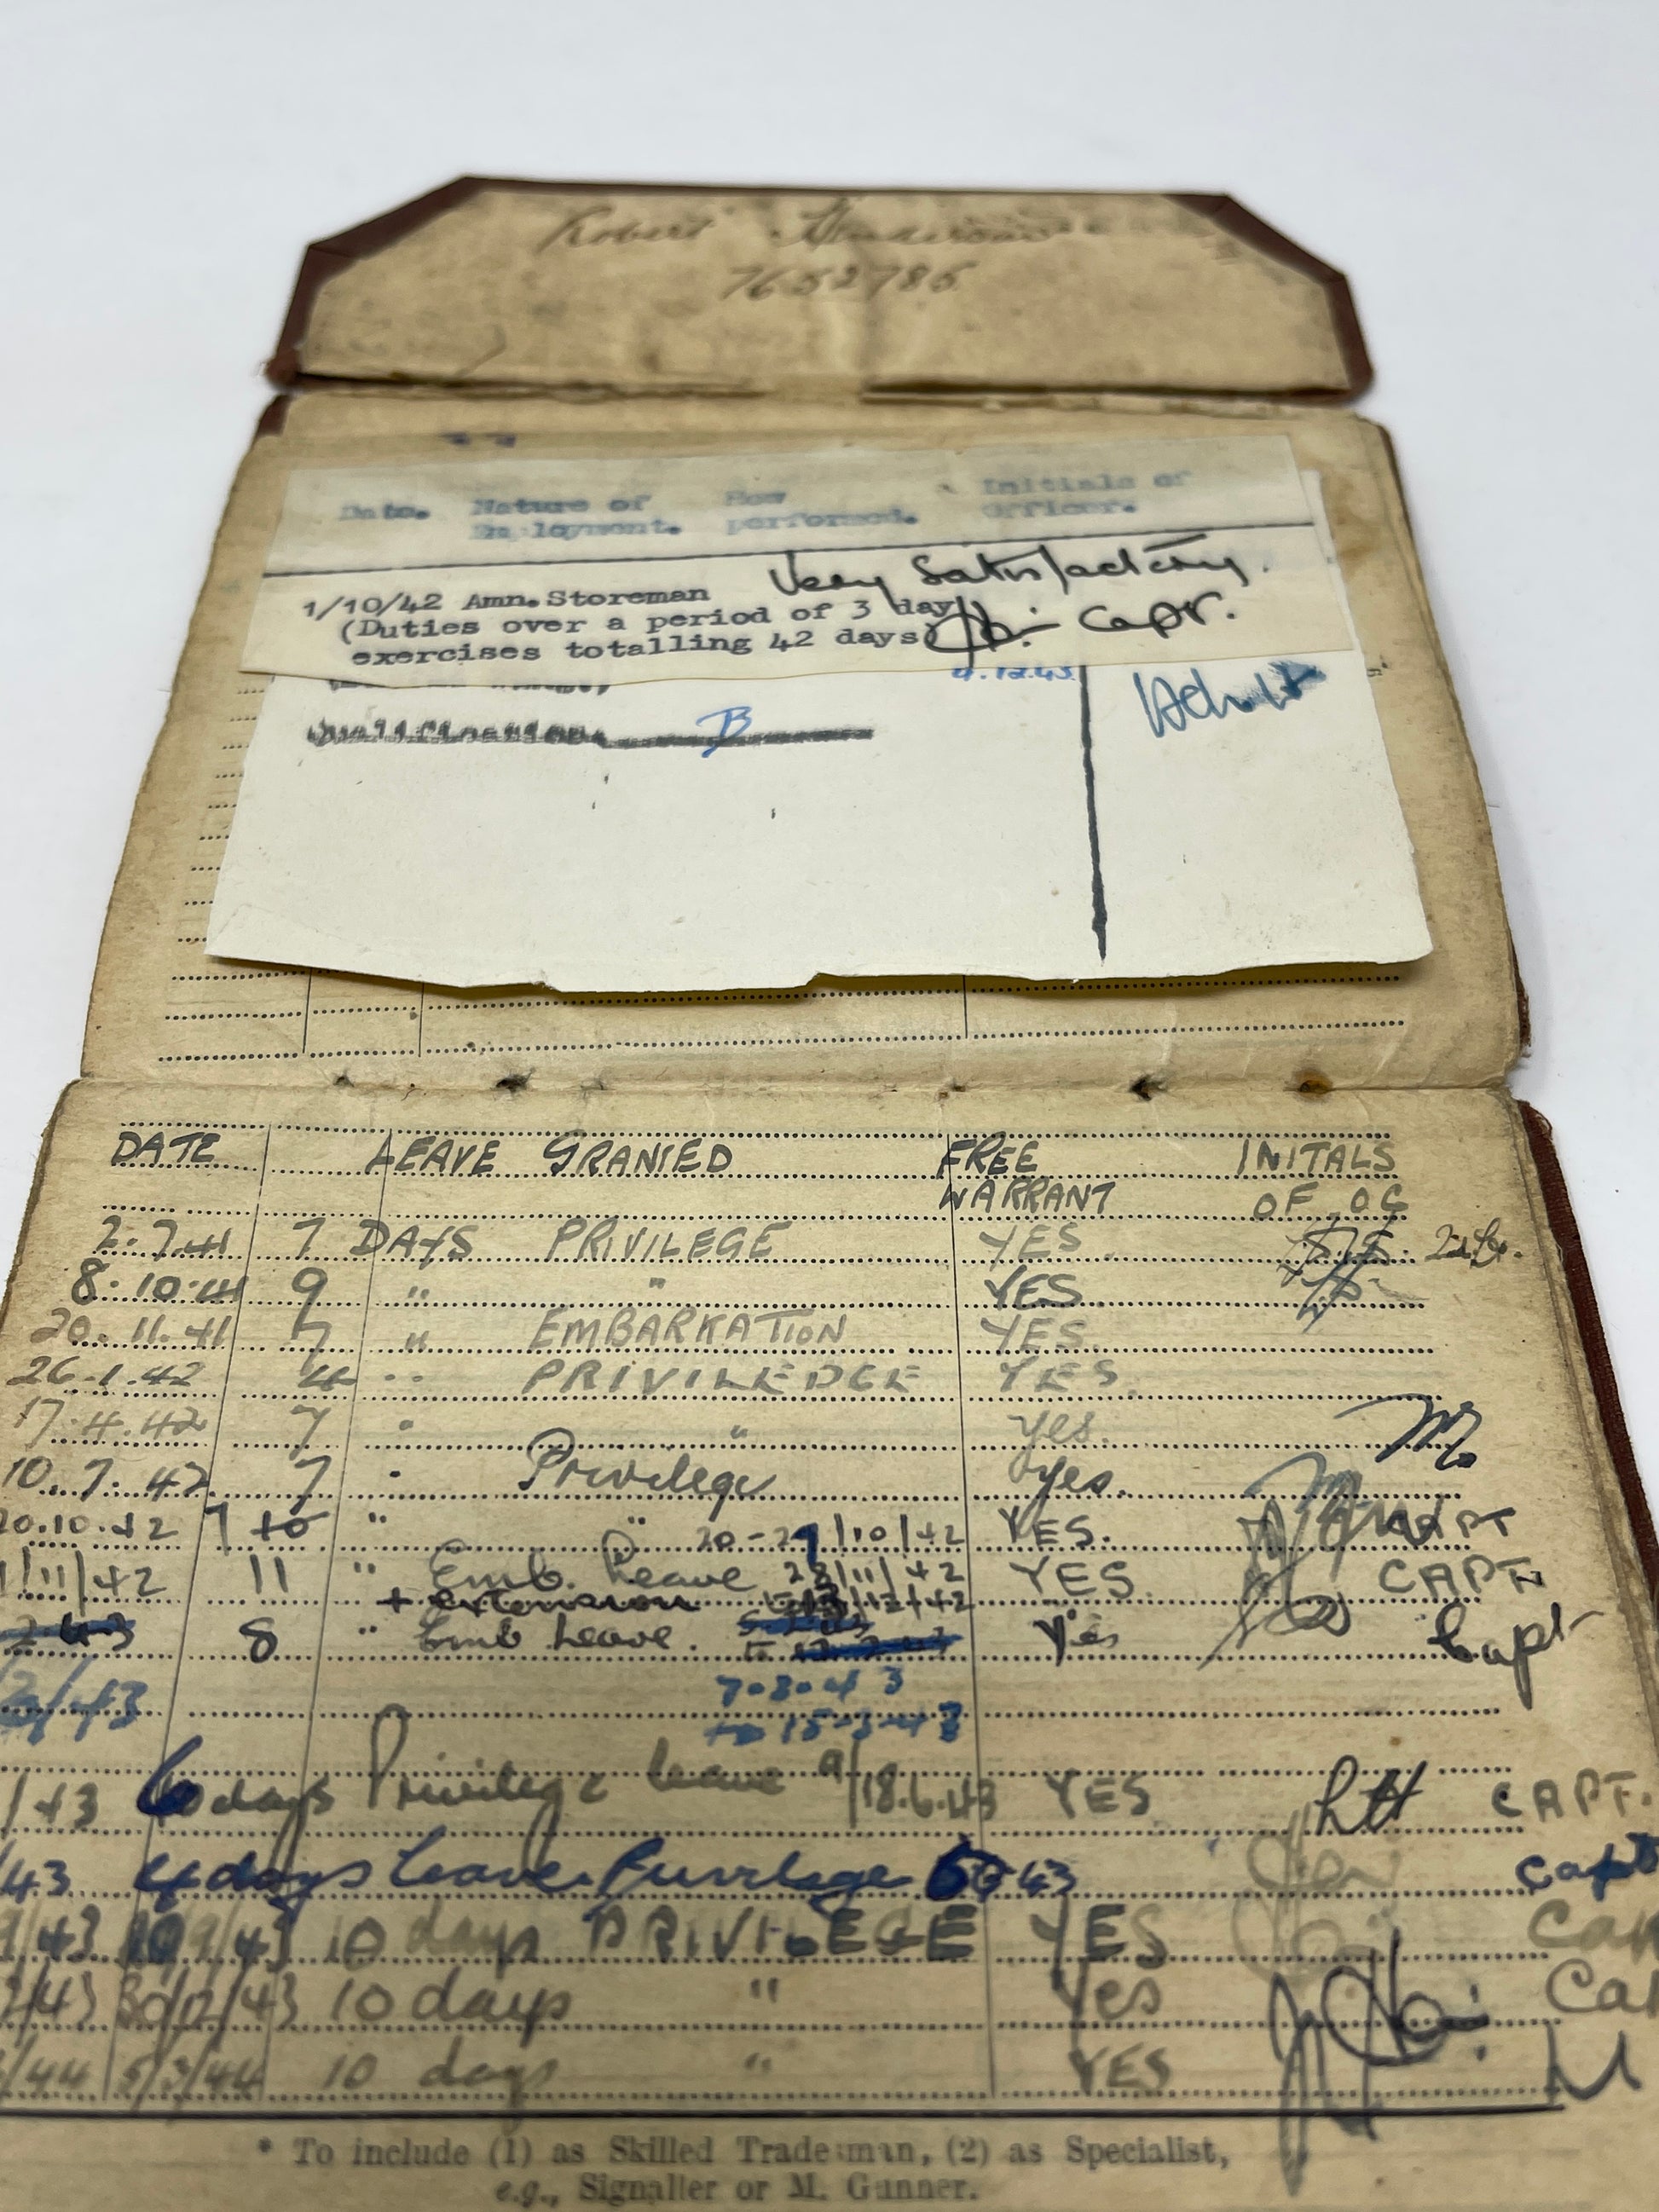 Robert Henderson
7652786
Date. Nature of Employment. How performed. Initials of Officer.
1/10/42 Amn.Storeman Very Satisfactory.
(Duties over a period of 3 day
exercises totalling 42 days Capt.
4.12.43
Qualification B
DATE LEAVE GRANTED FREE WARRANT INITALS OF OC
2.7.41 7 DAYS PRIVILEGE YES
8.10.41 9 " " YES
20.11.41 7 " EMBARKATION YES
26.1.42 4 " PRIVILEDGE YES
17.4.42 7 " " yes.
10.7.42 7 " Privilege yes.
20.10.42 7 " " 20-27/10/42 YES. CAPT
/11/42 11 " Emb. Leave 28/11/42 YES. CAPT
+ extension /12/42
8 " Emb Leave. Yes Capt
/43 7.3.43
to 15-3-43
/43 days Privilege leave 9/18.6.43 YES CAPT.
/43 4 days leave Purrlage 43 Capt
9/43 10/9/43 10 days PRIVILEGE YES
/43 30/12/43 10 days " Yes
/44 5/3/44 10 days " YES
* To include (1) as Skilled Tradesman, (2) as Specialist,
e.g., Signaller or M. Gunner.